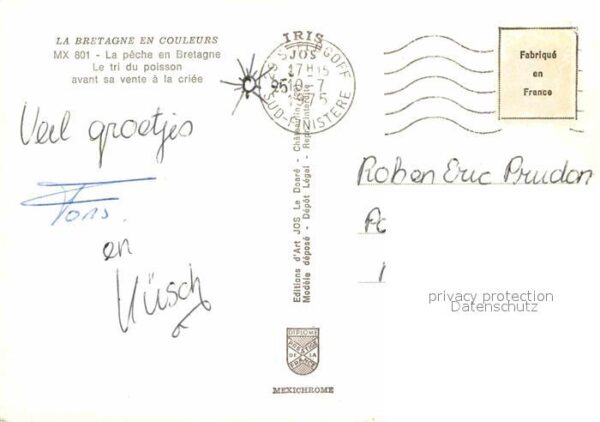 LA BRETAGNE EN COULEURS
MX 801 - La pêche en Bretagne
Le tri du poisson
avant sa vente à la criée
IRIS
JOS
17H15
10-7
1975
SUD-FINISTÈRE
Fabriqué
en
France
Veel groetjes
Fons.
en
Editions d'Art JOS Le Doaré - Châteaulin
Modèle déposé - Dépôt Légal - Repr. interdite
Rob en Eric Prudon
privacy protection
Datenschutz
DIPLOME
PRESTIGE
DE LA
FRANCE
MEXICHROME